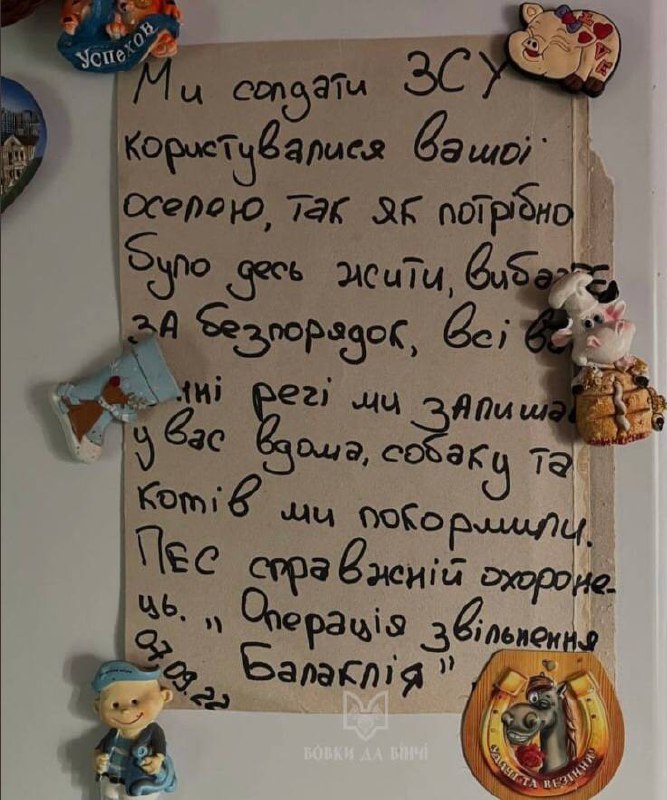 УСПЕХОВ
Ми солдати ЗСУ
користувалися вашої
оселею, так як потрібно
було десь жити,
за безпорядок, всі
речі ми
у вас вдома, собаку та
котів ми покормили.
ПЕС справжній охороне-
ць. „Операція звільнення
Балаклія"
07.09.22
ВОВКИ ДА ВИНЧІ
УДАЧІ ТА ВЕЗІННЯ!